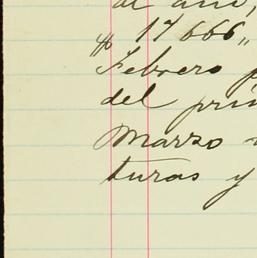 al año,
„ 17666 „
Febrero
del
Marzo
turas y